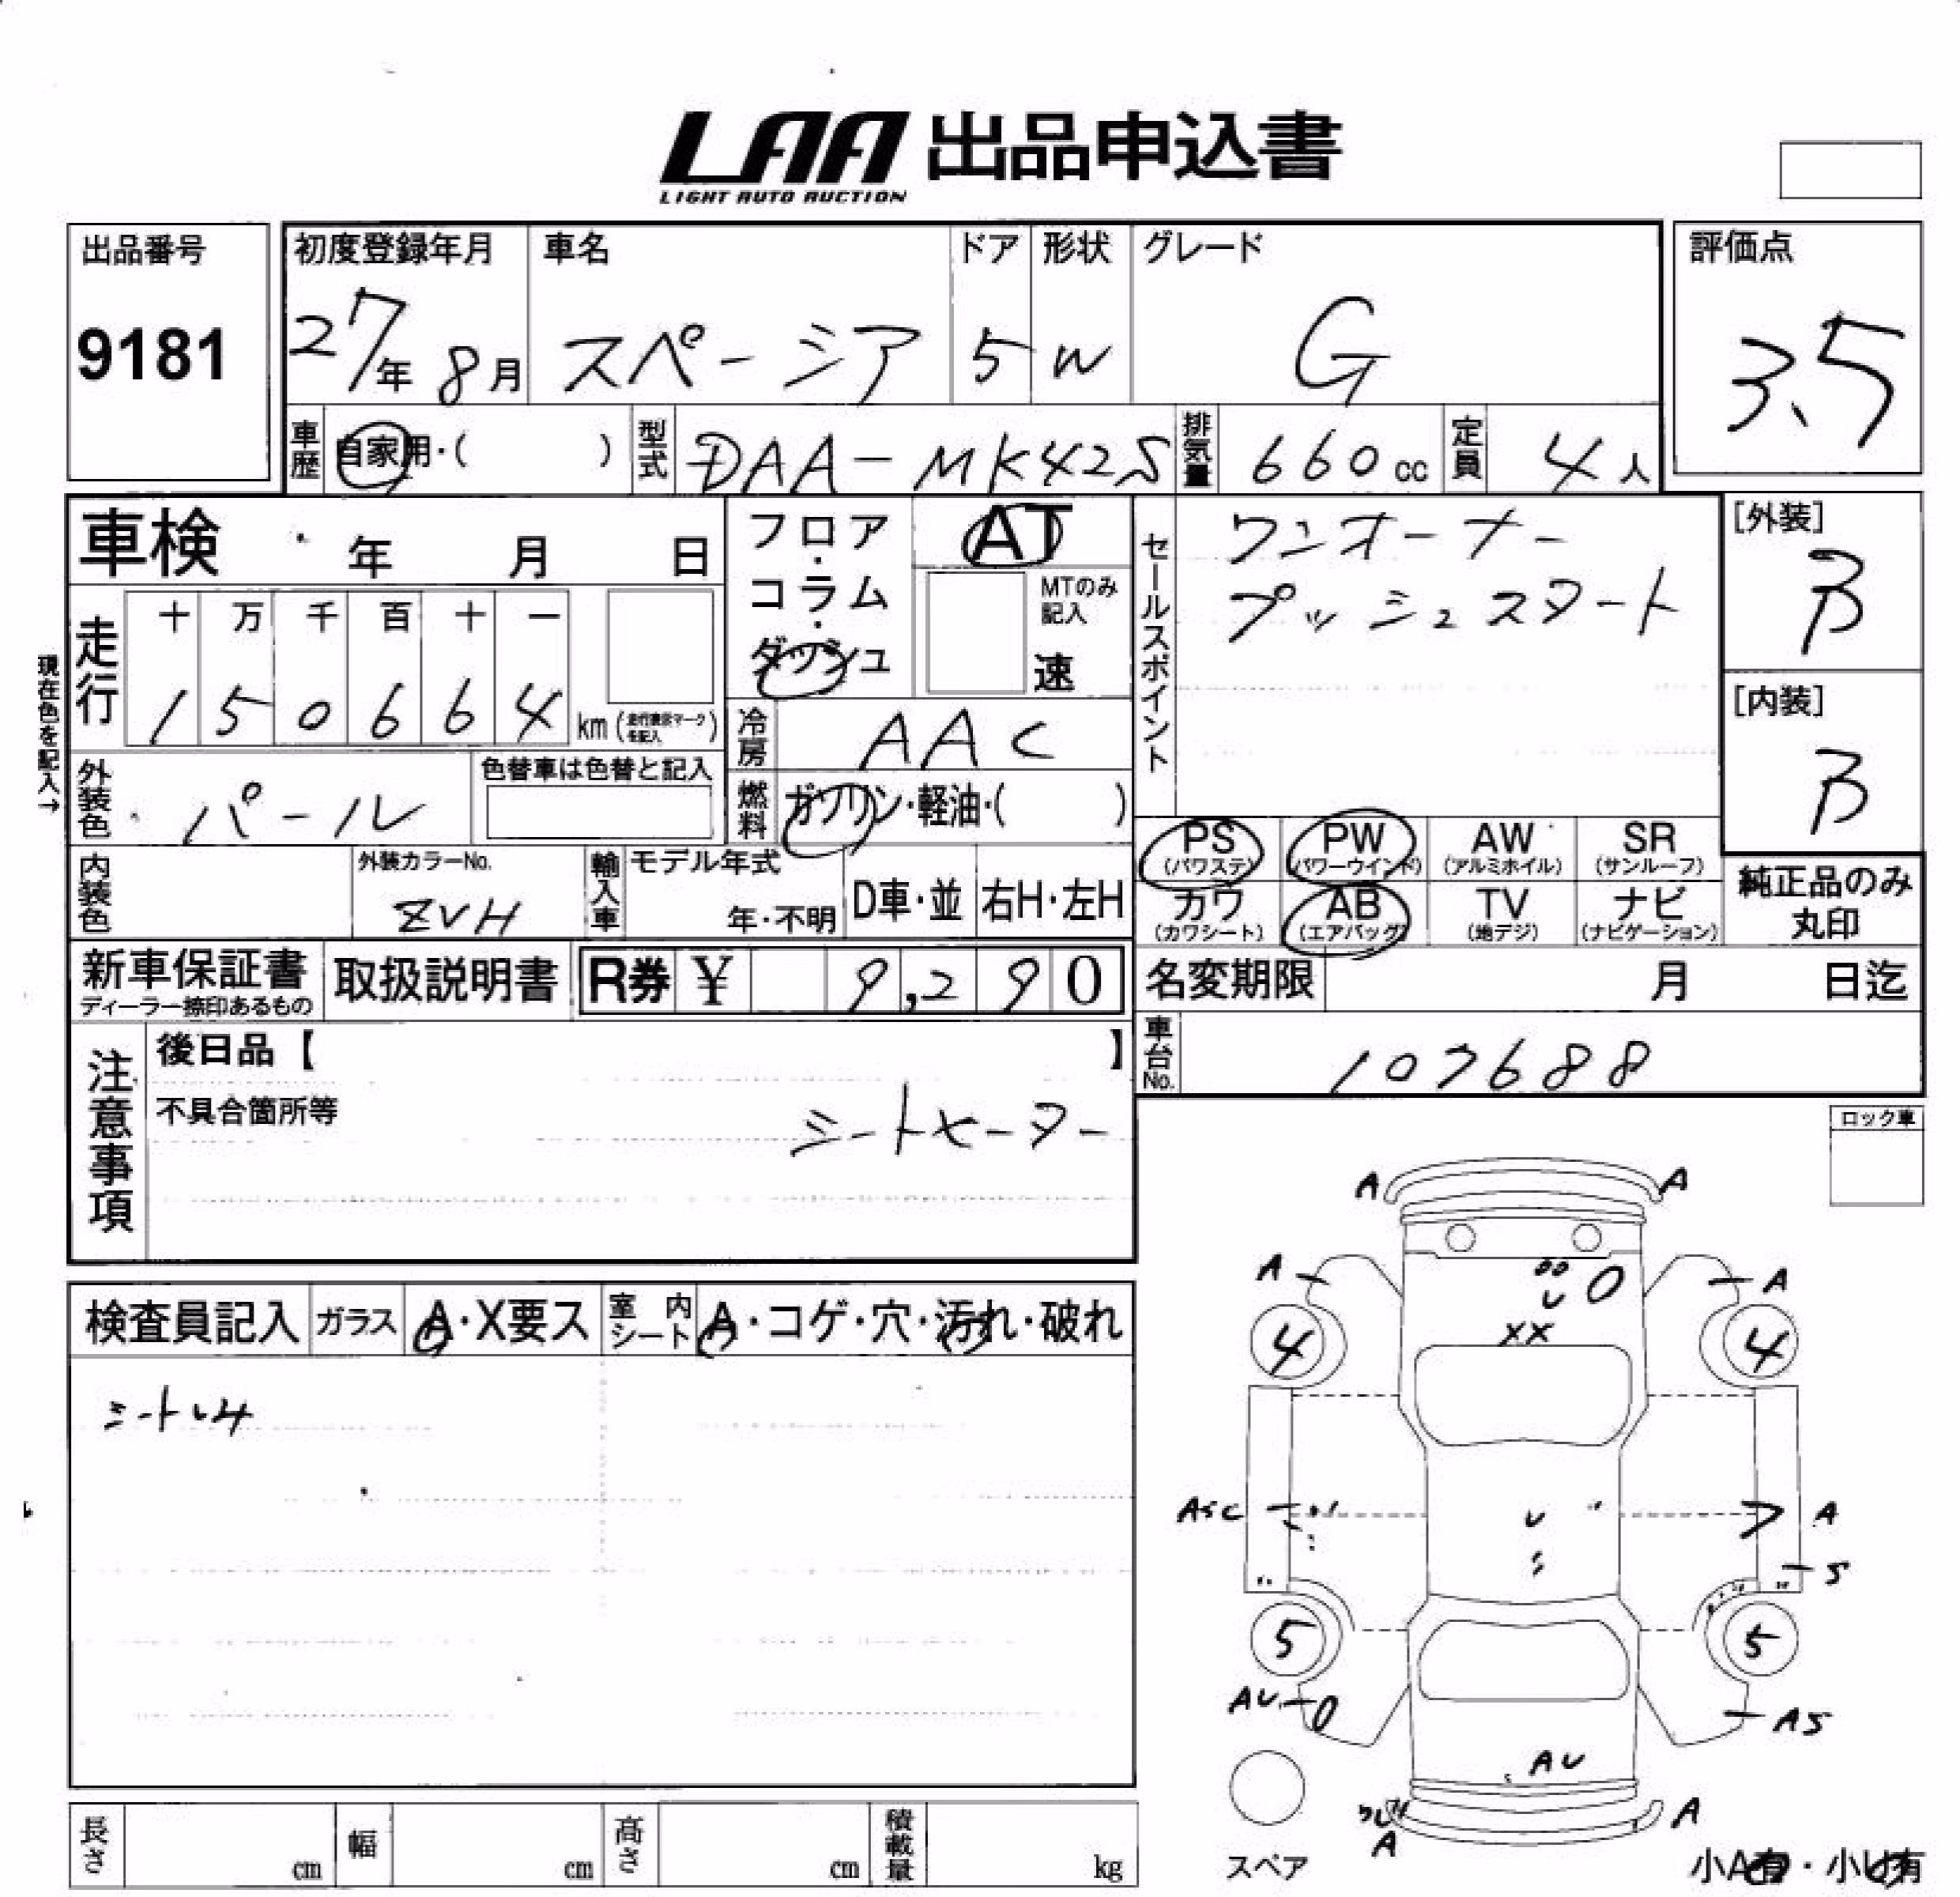 LAA 出品申込書
LIGHT AUTO AUCTION
出品番号
9181
初度登録年月
27年 8月
車名
スペーシア
ドア
5
形状
W
グレード
G
評価点
3.5
車歴
自家用・( )
型式
DAA-MK42S
排気量
660cc
定員
4人
車検 年 月 日
フロア・コラム・ダッシュ
AT
MTのみ記入
速
セールスポイント
ワンオーナー
プッシュスタート
[外装]
B
[内装]
B
現在色を記入→
走行
十 万 千 百 十 一
1 5 0 6 6 4 km
冷房
AAC
外装色
パール
色替車は色替と記入
燃料
ガソリン・軽油・( )
PS
(パワステ)
PW
(パワーウインド)
AW
(アルミホイル)
SR
(サンルーフ)
カワ
(カワシート)
AB
(エアバッグ)
TV
(地デジ)
ナビ
(ナビゲーション)
純正品のみ
丸印
内装色
外装カラーNo.
ZVH
輸入車
モデル年式
年・不明
D車・並
右H・左H
新車保証書
ディーラー捺印あるもの
取扱説明書
R券 ¥ 9,290
名変期限 月 日迄
車台No.
107688
注意事項
後日品【 】
不具合箇所等
シートヒーター
ロック車
検査員記入
ガラス
A・X要ス
室内シート
A・コゲ・穴・汚れ・破れ
A A
A A
U
XX
4 4
A
U
S
5 5
AU AS
AU
A A
スペア
小A有・小U有
長さ cm
幅 cm
高さ cm
積載量 kg